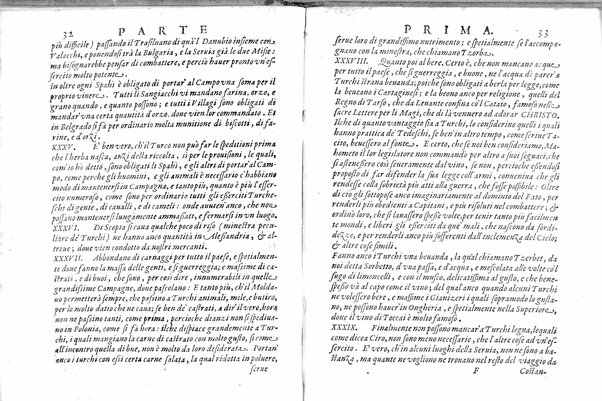 32 PARTE
più difficile) passando il Trasiluano di quà'l Danubio insieme con
Valacchi, e ponendosi trà la Bulgaria, e la Seruia già le due Misie:
ma bisognarebbe pensar di combattere, e perciò hauer pronto vn'es-
sercito molto potente.
In oltre ogni Spahì è obligato di portar'al Campo vna soma per il
proprio viuere. Tutti li Sangiacchi vi mandano farina, orzo, e
grano quando, e quanto possono; e tutti i Villagi sono obligati di
mandar'vna certa quantità d'orzo, doue vien lor commandato. Et
in Belgrado si fà per ordinario molta munitione di biscotti, di fa-
rine, e d'orzi.
XXXV. E' ben vero, ch'il Turco non può far le espeditioni prima
che l'herba nasca, anzi della raccolta, sì per le prouisioni, le quali,
com'io hò detto, sono obligati li Spahì, e gli altri di portar'al Cam-
po, come perche gli huomini, e gli animali è necessario c'habbiano
modo di mantenersi in Campagna, e tanto più, quanto è più l'esser-
cito numeroso, come sono per ordinario tutti gli esserciti Turche-
schi di gente, di caualli, e di camelli: onde auuien'anco, che non
possano mantenersi lungamente ammassati, e fermarsi in vn luogo.
XXXVI. Di Scopia si caua qualche poco di riso (minestra pecu-
liare de' Turchi) ne hanno anco quantità in Alessandria, & al-
troue; doue vien condotto da nostri mercanti.
XXXVII. Abbondano di carnaggi per tutto il paese, e spetialmen-
te doue fanno la massa delle genti, e si guerreggia; e massime di ca-
strati, e di buoi, che sono, per così dire, innumerabili in quelle
grandissime Campagne, doue pascolano: E tanto più, ch'il Molda-
uo permetterà sempre, che passino a Turchi animali, mele, e butiro,
per lo molto datio che ne caua; se ben de' castrati, a dir'il vero, hora
non ne passino tanti, come prima, perche dianzi non si spediua-
no in Polonia, come si fà hora: ilche dispiace grandemente a Tur-
chi, i quali mangiano la carne di castrato con molto gusto, sì come
all'incontro quella di boue, non è molto da loro desiderata. Portan'
anco i turchi con essi certa carne salata, la qual ridotta in poluere,
serue
PRIMA. 33
serue loro di grandissimo nutrimento: e spetialmente se l'accompa-
gnano con la minestra, che chiamano Tzorba.
XXXVIII. Quanto poi al bere. Certo è, che non mancano acque
per tutto il paese, ch'si guerreggia, e buone, ne l'acqua dè parer'a
Turchi strana beuanda, poiche sono obligati a berla per legge, come
la beueano i Cartaginesi: e la beono anco per religione, quelli del
Regno di Tarso, che da Leuante confina co'l Cataio, famoso nelle
sacre Lettere per li Magi, che di là vennero ad adorar CHRISTO.
Ilche di quanto vantaggio sia a Turchi, lo considerino quelli i quali
hanno prattica de' Tedeschi, se ben'in altro tempo, come scriue Ta-
cito, beuessero al fonte. E certo, che se noi ben consideriamo, Ma-
hometto il lor legislatore non commandò per altro a suoi seguaci, che
si astenessero così seueramente dal vino, se non, perche essendosi
proposto di far difender la sua legge coll'armi, conueniua che gli
rendesse colla sobrietà più atti alla guerra, che fosse possibile: Oltre
di ciò gli sottopose anco imaginariamente al dominio del Fato, per
renderli più obedienti a Capitani, e più risoluti nel combattere; &
ordinò loro, che si lauassero spesse volte, per tener tanto più facilmen-
te mondi, e liberi gli esserciti da que' mali, che nascono da sordi-
dezza, e per renderli anco più sofferenti dall'inclemenza del Cielo;
& altre cose simili.
Fanno anco i Turchi vna beuanda, la qual chiamano Tzerbet, da
noi detta Sorbetto, di vua passa, e d'acqua, e mescolata alle volte co'l
sugo di limoncini, e co'l musco, delicatissima al gusto, e che bene-
spesso và al capo come il vino; del qual quando alcuni Turchi
ne volessero bere, e massime i Gianizeri i quali sopramodo lo gusta-
no, ne possono hauer'in Ongheria, e spetialmente nella Superiore,
doue il vino di Toccai è molto famoso.
XXXIX. Finalmente non possono mancar'a Turchi legna, le quali
come dicea Ciro, non sono meno necessarie, che l'altre cose ad vn'es-
sercito. E' vero, ch'in alcuni luoghi della Seruia, non ne sono a ba-
stanza, ma quante ne vogliono ne trouano nel resto del viaggio da
F Costan-